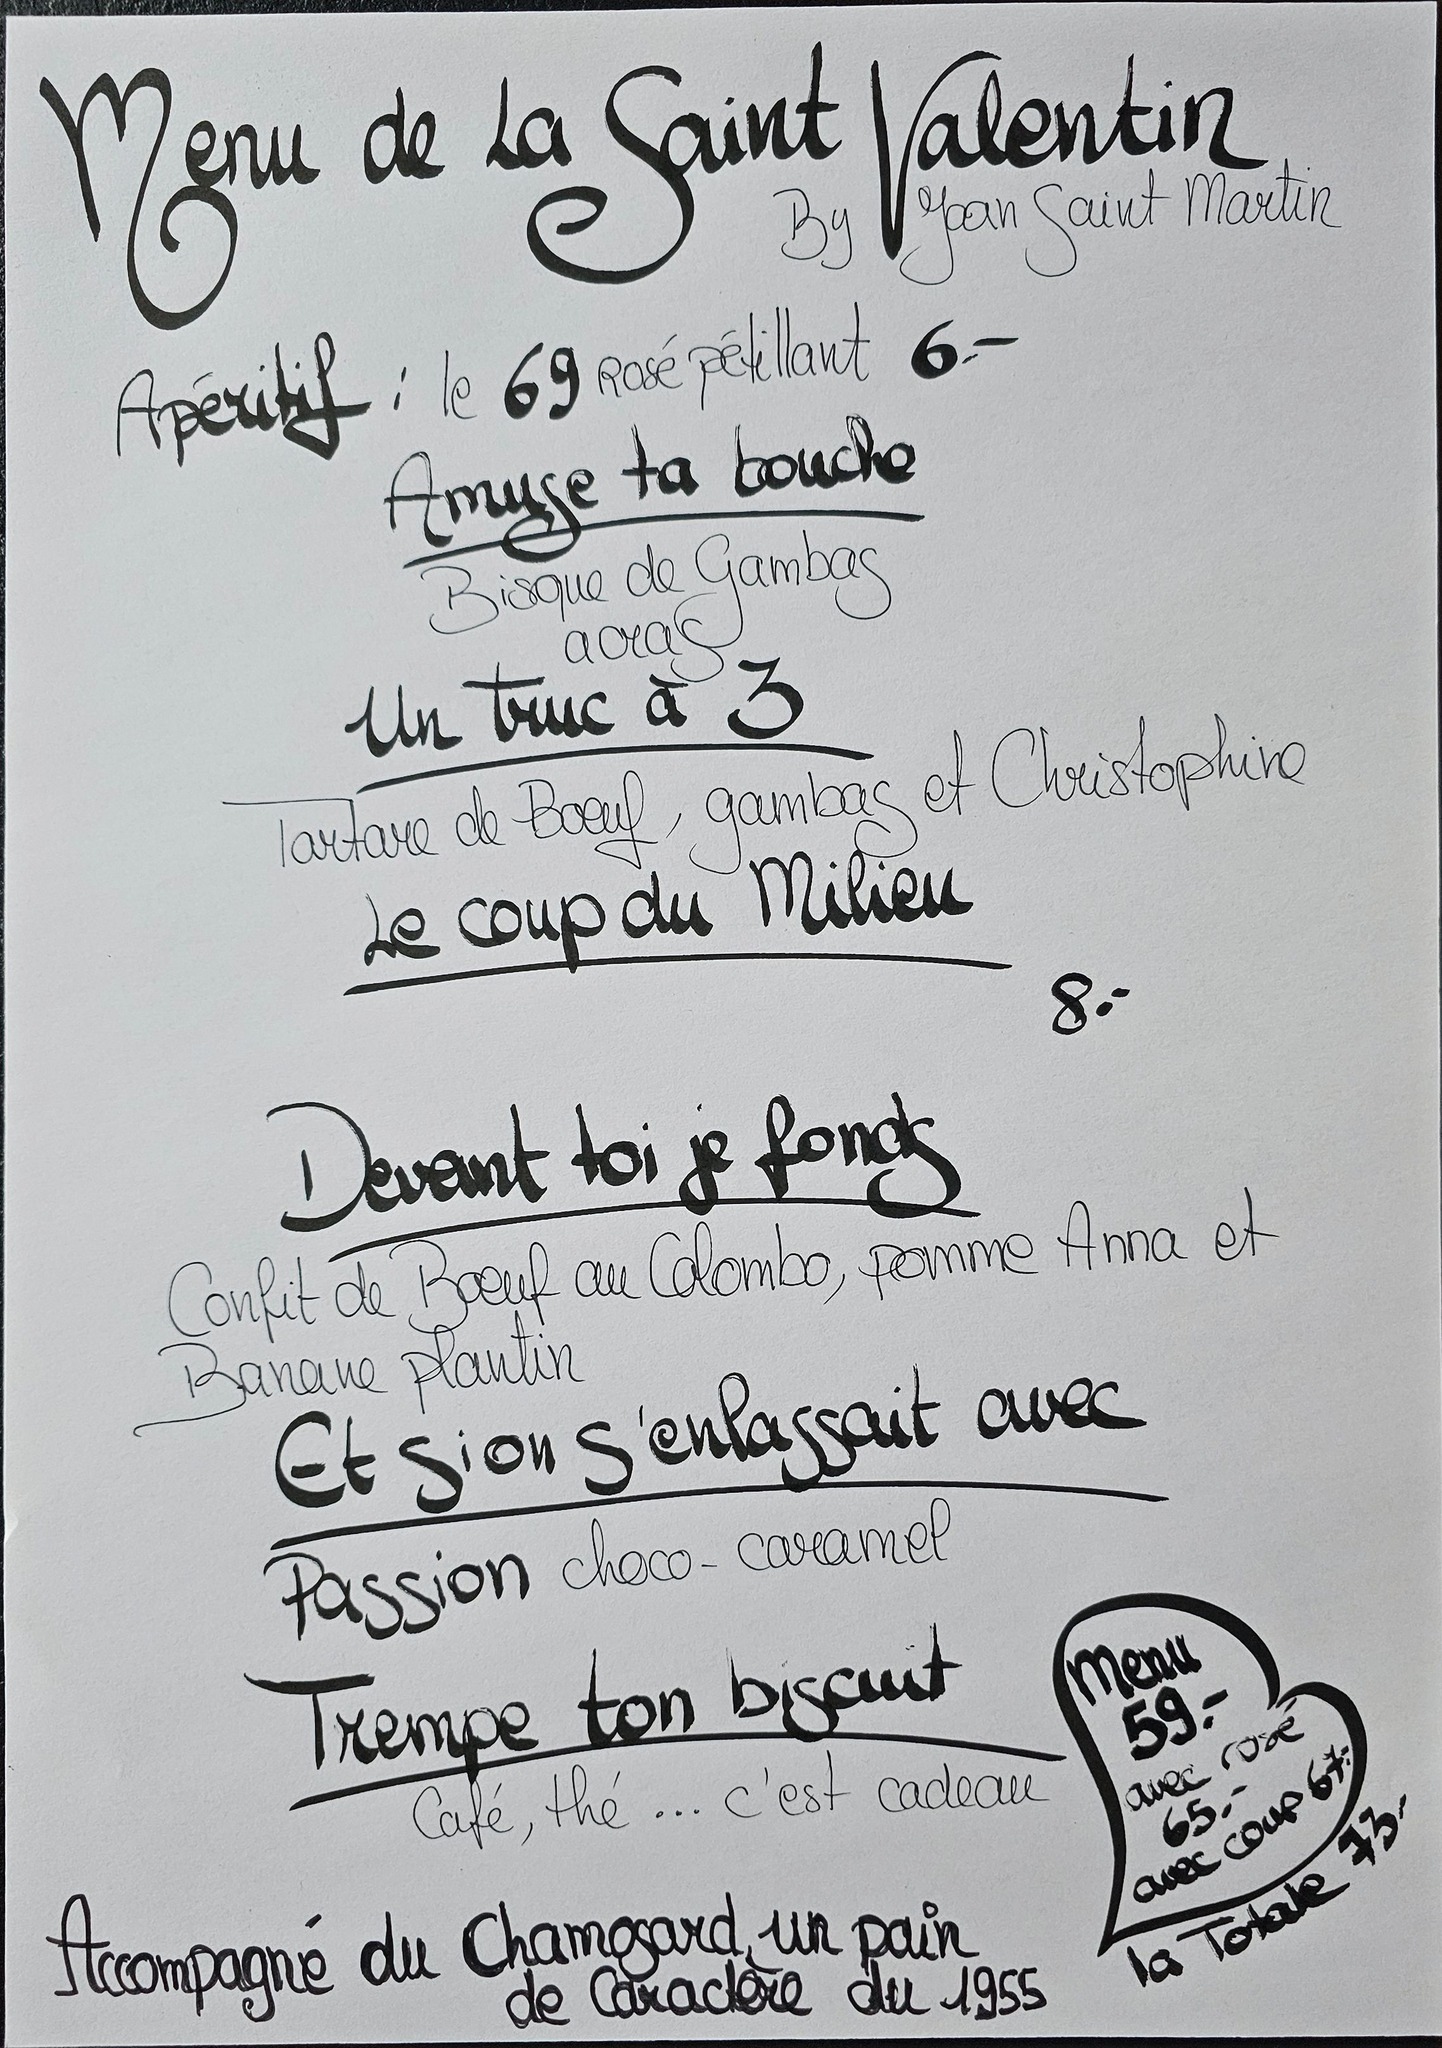 Menu de La Saint Valentin
By Yoan Saint Martin
Apéritif : le 69 Rosé pétillant 6.-
Amuse ta bouche
Bisque de Gambas
acras
Un truc à 3
Tartare de Boeuf, gambas et Christophine
Le coup du Milieu
8.-
Devant toi je fonds
Confit de Boeuf au Colombo, pomme Anna et
Banane plantin
Et si on s'enlassait avec
Passion choco-caramel
Trempe ton biscuit
Café, thé ... c'est cadeau
Menu
59.-
avec rosé
65.-
avec coup 67.-
la Totale 73.-
Accompagné du Chamosard, un pain
de Caractère du 1955